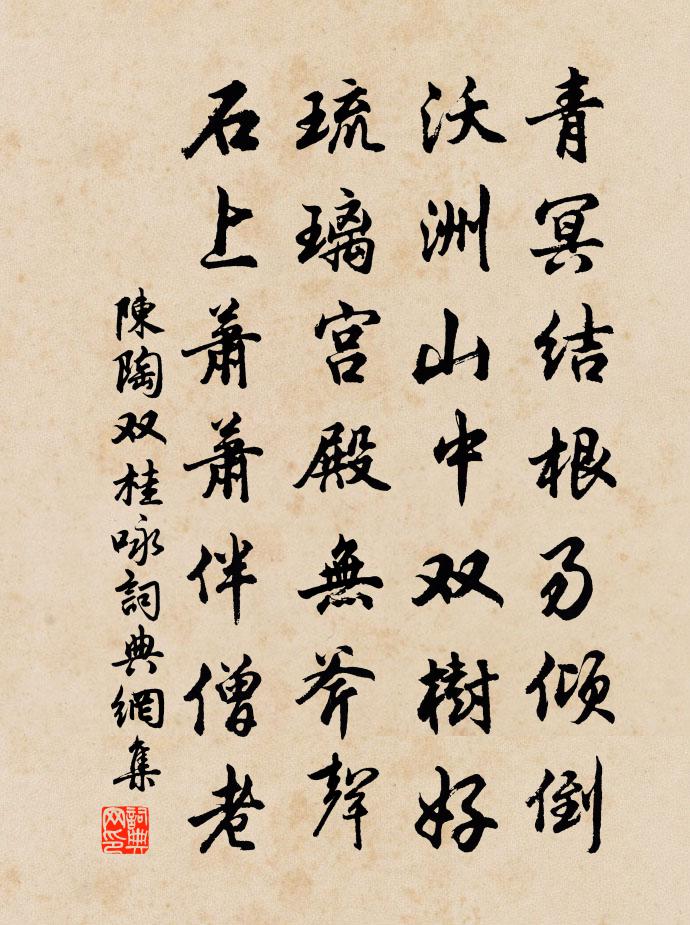 青冥结根易倾倒
沃洲山中双樹好
琉璃宫殿無斧聲
石上蕭蕭伴僧老
陳陶双桂咏詞典網集
詞典网印